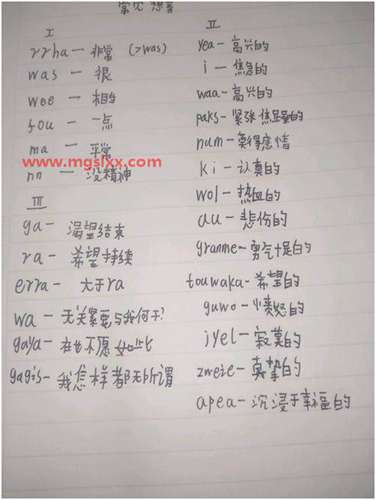 常见想音
I
rrha — 非常 (>was)
was — 很
wee — 相当
fou — 一点
ma — 平常
nn — 没精神
www.mgslxx.com
III
ga — 渴望结束
ra — 希望持续
erra — 大于ra
wa — 无关紧要与我何干?
gaya — 再也不愿如此
gagis — 我怎样都无所谓
II
yea — 高兴的
i — 焦急的
waa — 高兴的
paks — 紧张焦虑的
num — 莫得感情
ki — 认真的
wol — 热血的
au — 悲伤的
granme — 勇气十足的
touwaka — 希望的
guwo — 愤怒的
jyel — 寂寞的
zweie — 真挚的
apea — 沉浸于幸福的